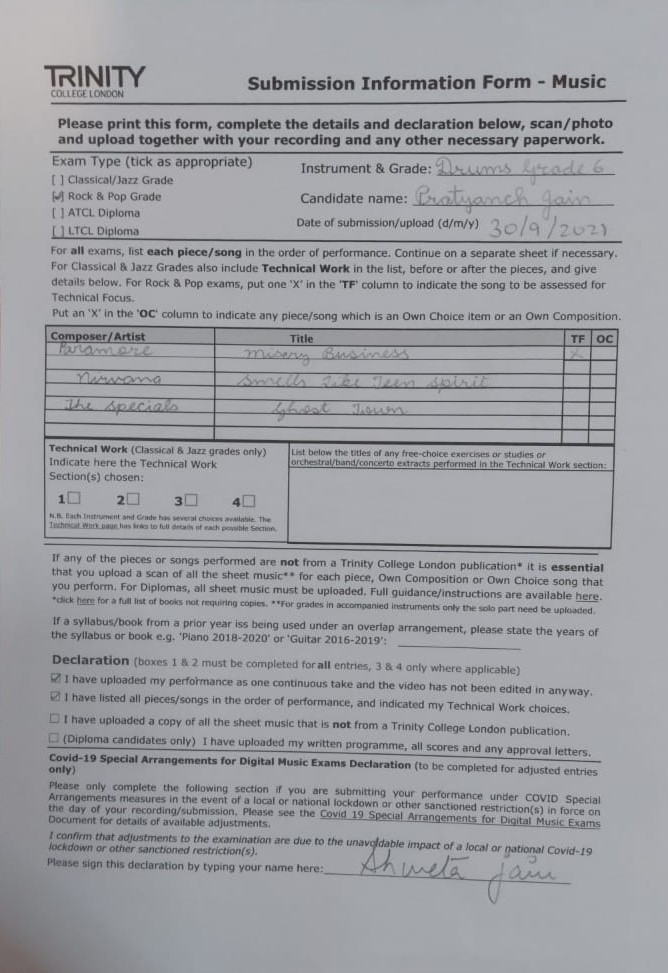 TRINITY
COLLEGE LONDON
Submission Information Form - Music
Please print this form, complete the details and declaration below, scan/photo
and upload together with your recording and any other necessary paperwork.
Exam Type (tick as appropriate)
[ ] Classical/Jazz Grade
[✓] Rock & Pop Grade
[ ] ATCL Diploma
[ ] LTCL Diploma
Instrument & Grade: Drums Grade 6
Candidate name: Pratyanch Jain
Date of submission/upload (d/m/y) 30/9/2021
For all exams, list each piece/song in the order of performance. Continue on a separate sheet if necessary.
For Classical & Jazz Grades also include Technical Work in the list, before or after the pieces, and give
details below. For Rock & Pop exams, put one 'X' in the 'TF' column to indicate the song to be assessed for
Technical Focus.
Put an 'X' in the 'OC' column to indicate any piece/song which is an Own Choice item or an Own Composition.
Composer/Artist Title TF OC
Paramore Misery Business X
Nirvana Smells Like Teen Spirit
The Specials Ghost Town
Technical Work (Classical & Jazz grades only)
Indicate here the Technical Work
Section(s) chosen:
1☐ 2☐ 3☐ 4☐
N.B. Each Instrument and Grade has several choices available. The
Technical Work page has links to full details of each possible Section.
List below the titles of any free-choice exercises or studies or
orchestral/band/concerto extracts performed in the Technical Work section:
If any of the pieces or songs performed are not from a Trinity College London publication* it is essential
that you upload a scan of all the sheet music** for each piece, Own Composition or Own Choice song that
you perform. For Diplomas, all sheet music must be uploaded. Full guidance/instructions are available here.
*click here for a full list of books not requiring copies. **For grades in accompanied instruments only the solo part need be uploaded.
If a syllabus/book from a prior year iss being used under an overlap arrangement, please state the years of
the syllabus or book e.g. 'Piano 2018-2020' or 'Guitar 2016-2019':
Declaration (boxes 1 & 2 must be completed for all entries, 3 & 4 only where applicable)
☑ I have uploaded my performance as one continuous take and the video has not been edited in anyway.
☑ I have listed all pieces/songs in the order of performance, and indicated my Technical Work choices.
☐ I have uploaded a copy of all the sheet music that is not from a Trinity College London publication.
☐ (Diploma candidates only) I have uploaded my written programme, all scores and any approval letters.
Covid-19 Special Arrangements for Digital Music Exams Declaration (to be completed for adjusted entries
only)
Please only complete the following section if you are submitting your performance under COVID Special
Arrangements measures in the event of a local or national lockdown or other sanctioned restriction(s) in force on
the day of your recording/submission. Please see the Covid 19 Special Arrangements for Digital Music Exams
Document for details of available adjustments.
I confirm that adjustments to the examination are due to the unavoidable impact of a local or national Covid-19
lockdown or other sanctioned restriction(s).
Please sign this declaration by typing your name here: Shweta Jain